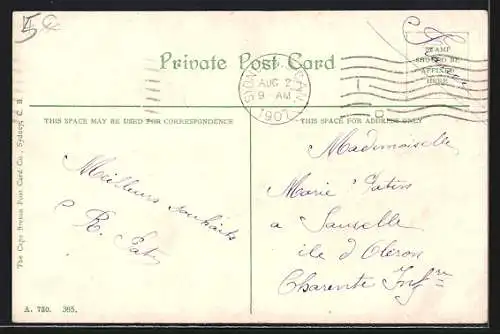 Private Post Card
STAMP
SHOULD BE
AFFIXED
HERE
SYDNEY CAN.
AUG 2
9 AM
1907
THIS SPACE MAY BE USED FOR CORRESPONDENCE
THIS SPACE FOR ADDRESS ONLY
The Cape Breton Post Card Co., Sydney, C. B.
Meilleurs souhaits
R.
Mademoiselle
Marie
a Sauzelle
ile d'Oleron
Charente Infre
A. 720. 365.